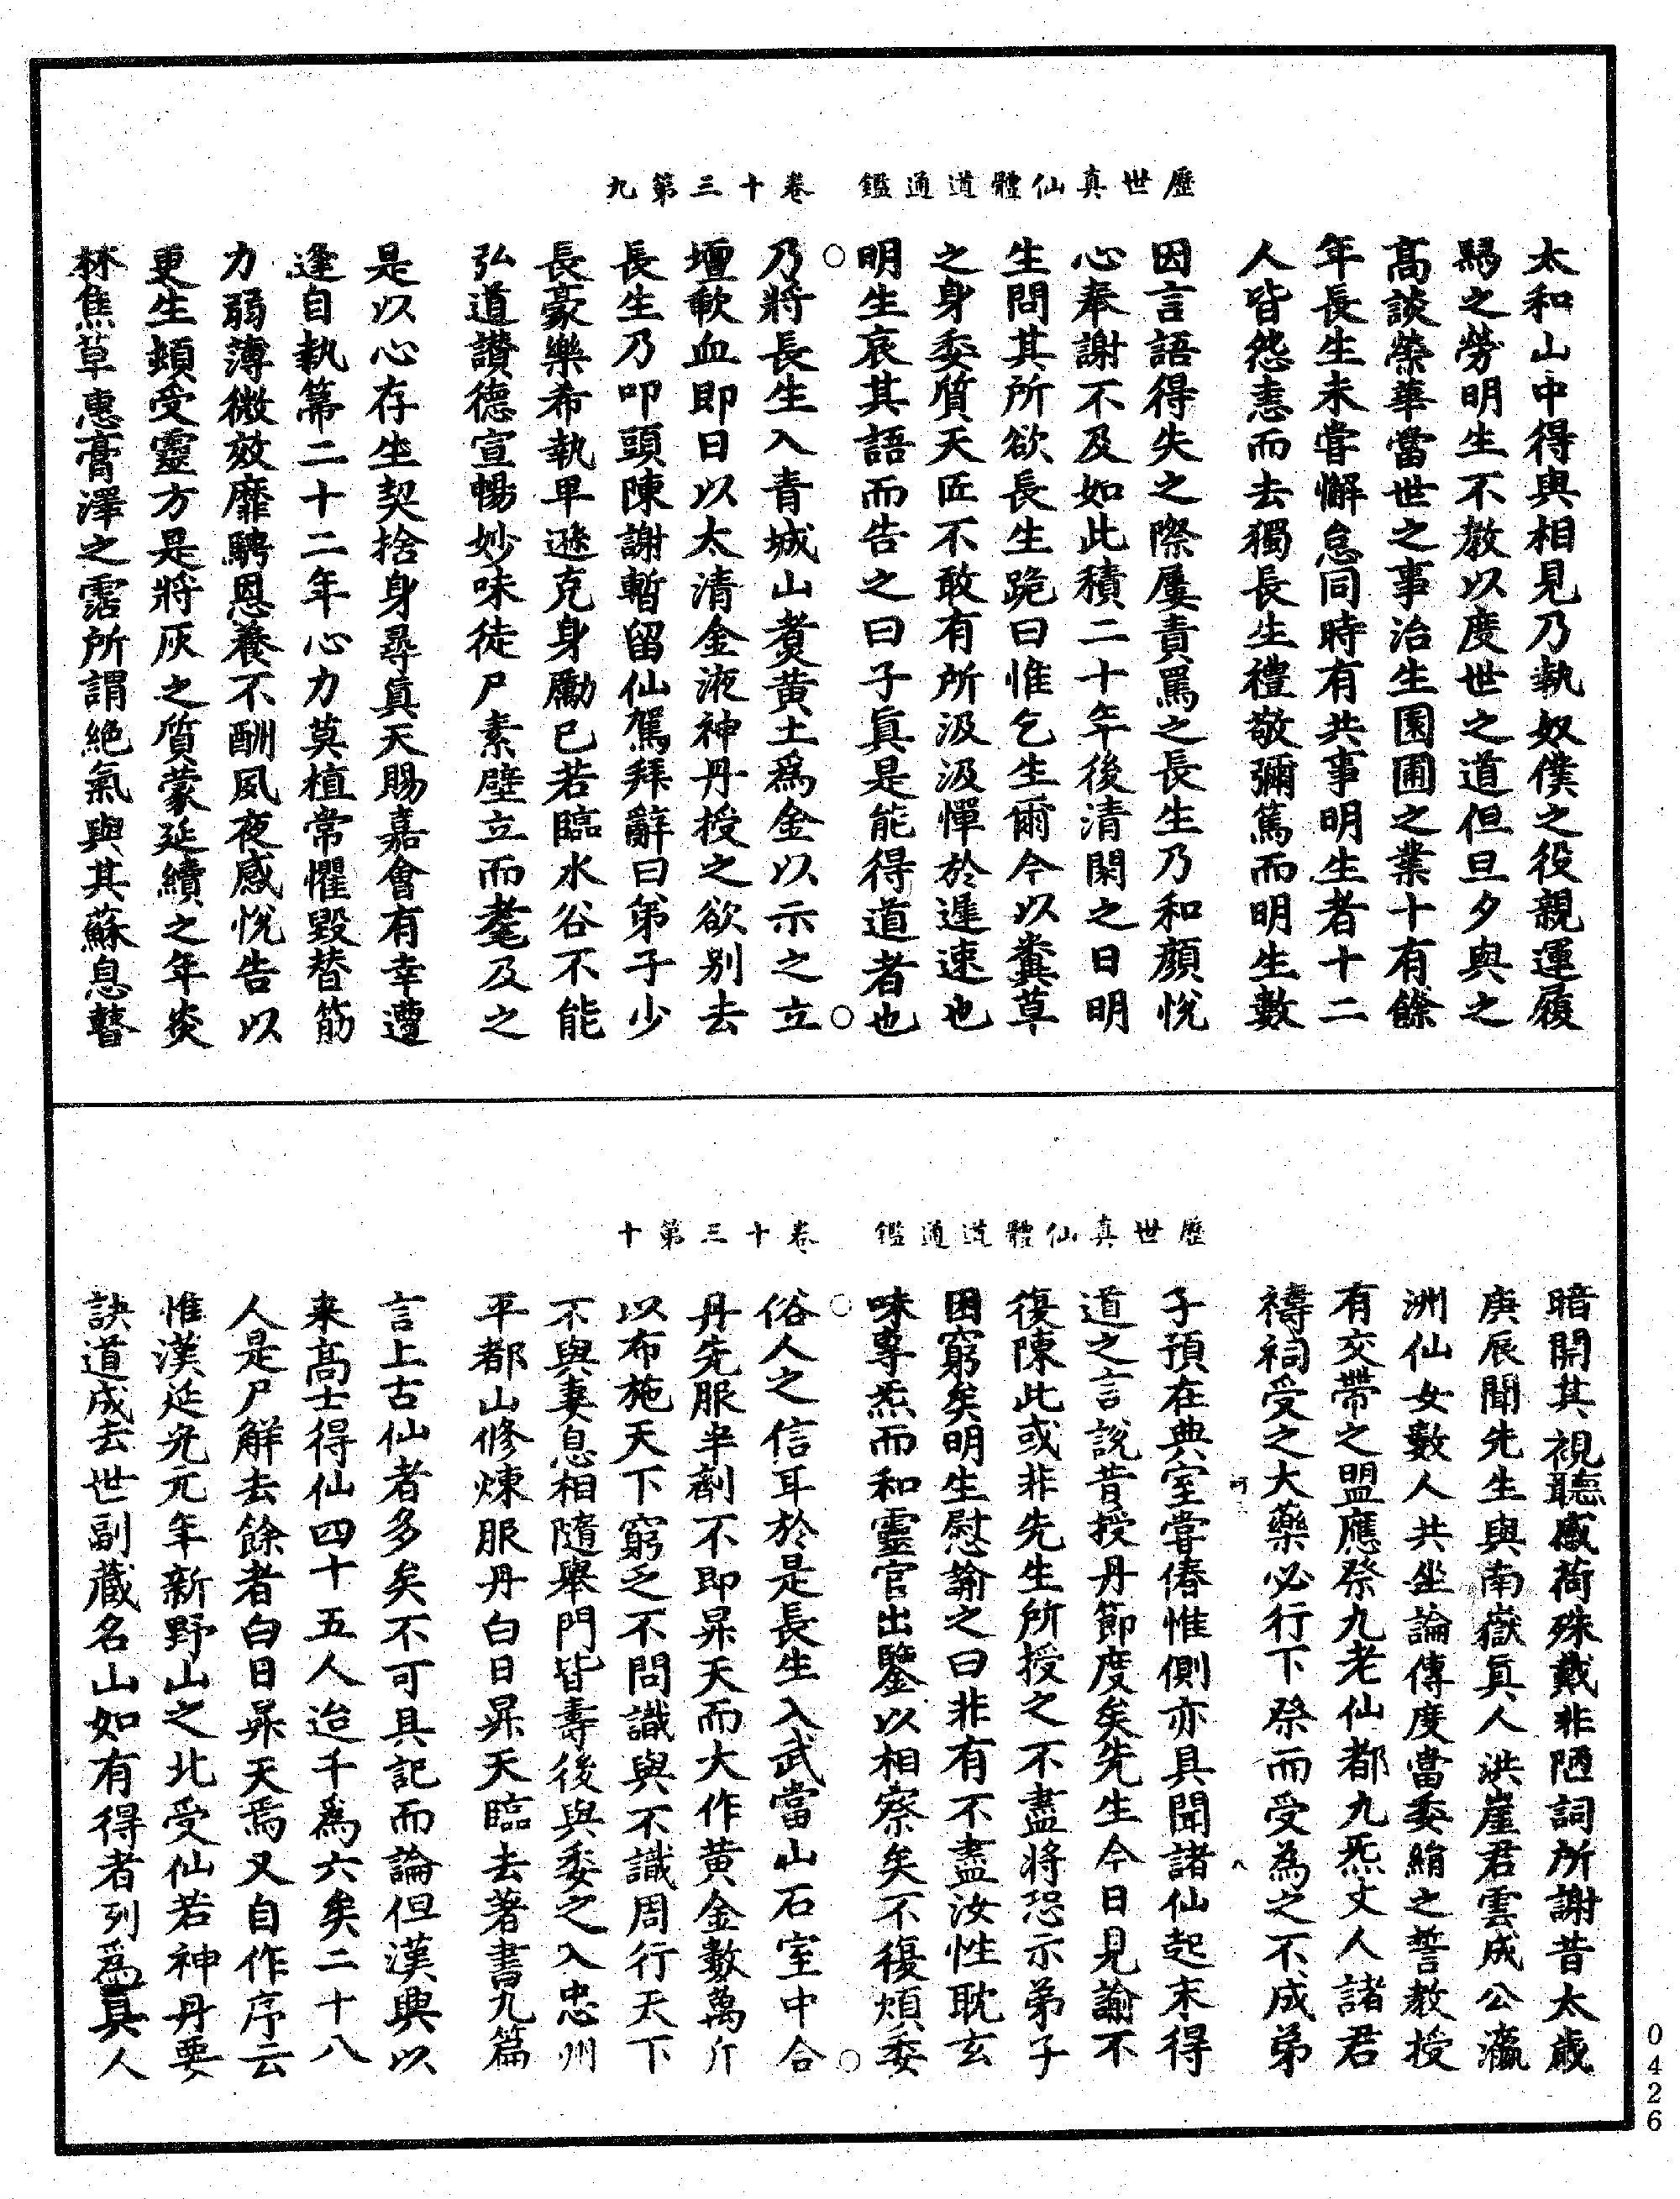 歷世真仙體道通鑑　卷十三第九
太和山中得與相見乃執奴僕之役親運履
舄之勞明生不教以度世之道但旦夕與之
高談榮華當世之事治生園圃之業十有餘
年長生未嘗懈怠同時有共事明生者十二
人皆怨恚而去獨長生禮敬彌篤而明生數
因言語得失之際屢責罵之長生乃和顏悅
心奉謝不及如此積二十年後清閑之日明
生問其所欲長生跪曰惟乞生爾今以糞草
之身委質天匠不敢有所汲汲憚於遲速也
明生哀其語而告之曰子真是能得道者也
乃將長生入青城山煑黃土爲金以示之立
壇歃血即日以太清金液神丹授之欲別去
長生乃叩頭陳謝暫留仙駕拜辭曰弟子少
長豪樂希執卑遜克身勵已若臨水谷不能
弘道讚德宣暢妙味徒尸素壁立而耄及之
是以心存坐契捨身尋真天賜嘉會有幸遭
逢自執箒二十二年心力莫植常懼毀替筋
力弱薄微效靡騁恩養不酬夙夜感悅告以
更生頓受靈方是將灰之質蒙延續之年炎
林焦草惠膏澤之霑所謂絶氣與其蘇息瞽
歷世真仙體道通鑑　卷十三第十
暗開其視聽感荷殊戴非陋詞所謝昔太歲
庚辰聞先生與南嶽真人洪崖君雲成公瀛
洲仙女數人共坐論傳度當委絹之誓教授
有交帶之盟應祭九老仙都九炁丈人諸君
禱祠受之大藥必行下祭而受為之不成弟
子預在典室嘗侍惟側亦具聞諸仙起末得
道之言說昔授丹節度矣先生今日見諭不
復陳此或非先生所授之不盡將恐示弟子
困窮矣明生慰諭之曰非有不盡汝性耽玄
味專炁而和靈官出鑒以相察矣不復煩委
俗人之信耳於是長生入武當山石室中合
丹先服半劑不即昇天而大作黄金數萬斤
以布施天下窮乏不問識與不識周行天下
不與妻息相隨舉門皆壽後與委之入忠州
平都山修煉服丹白日昇天臨去著書九篇
言上古仙者多矣不可具記而論但漢興以
来高士得仙四十五人迨千爲六矣二十八
人是尸解去餘者白日昇天焉又自作序云
惟漢延光元年新野山之北受仙若神丹要
訣道成去世副藏名山如有得者列爲真人
0426